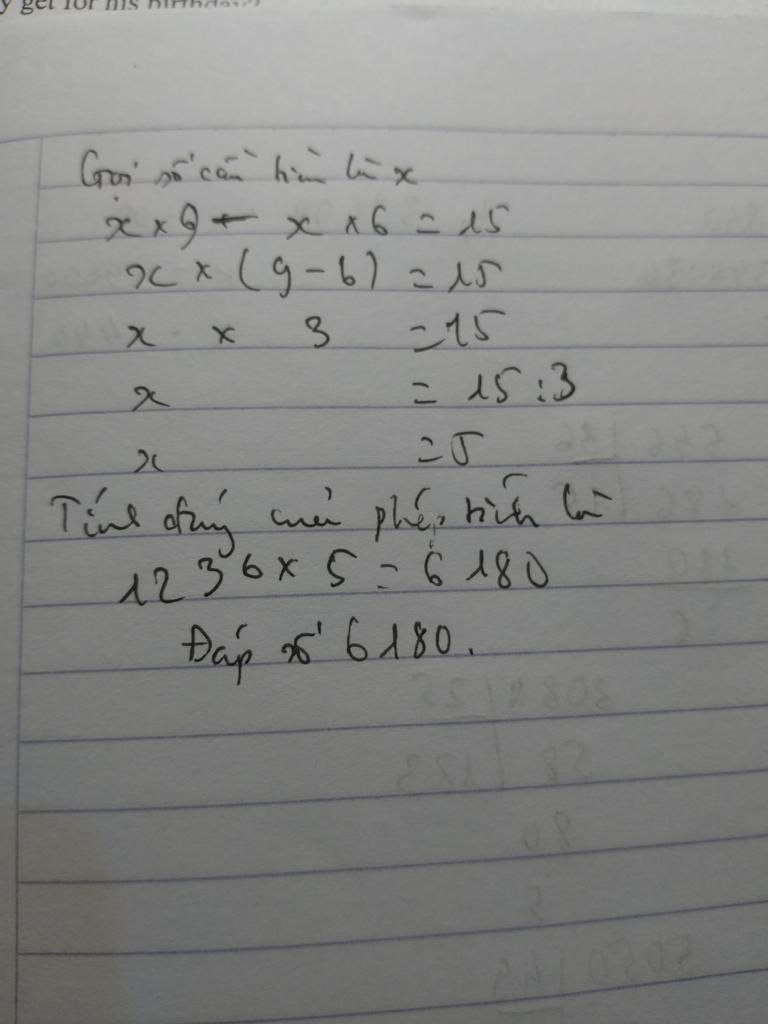 y get for his birthday?
Gọi số cần tìm là x
x × 9 - x × 6 = 15
x × (9 - 6) = 15
x × 3 = 15
x = 15 : 3
x = 5
Tính đúng của phép tính là
1236 × 5 = 6180
Đáp số 6180.